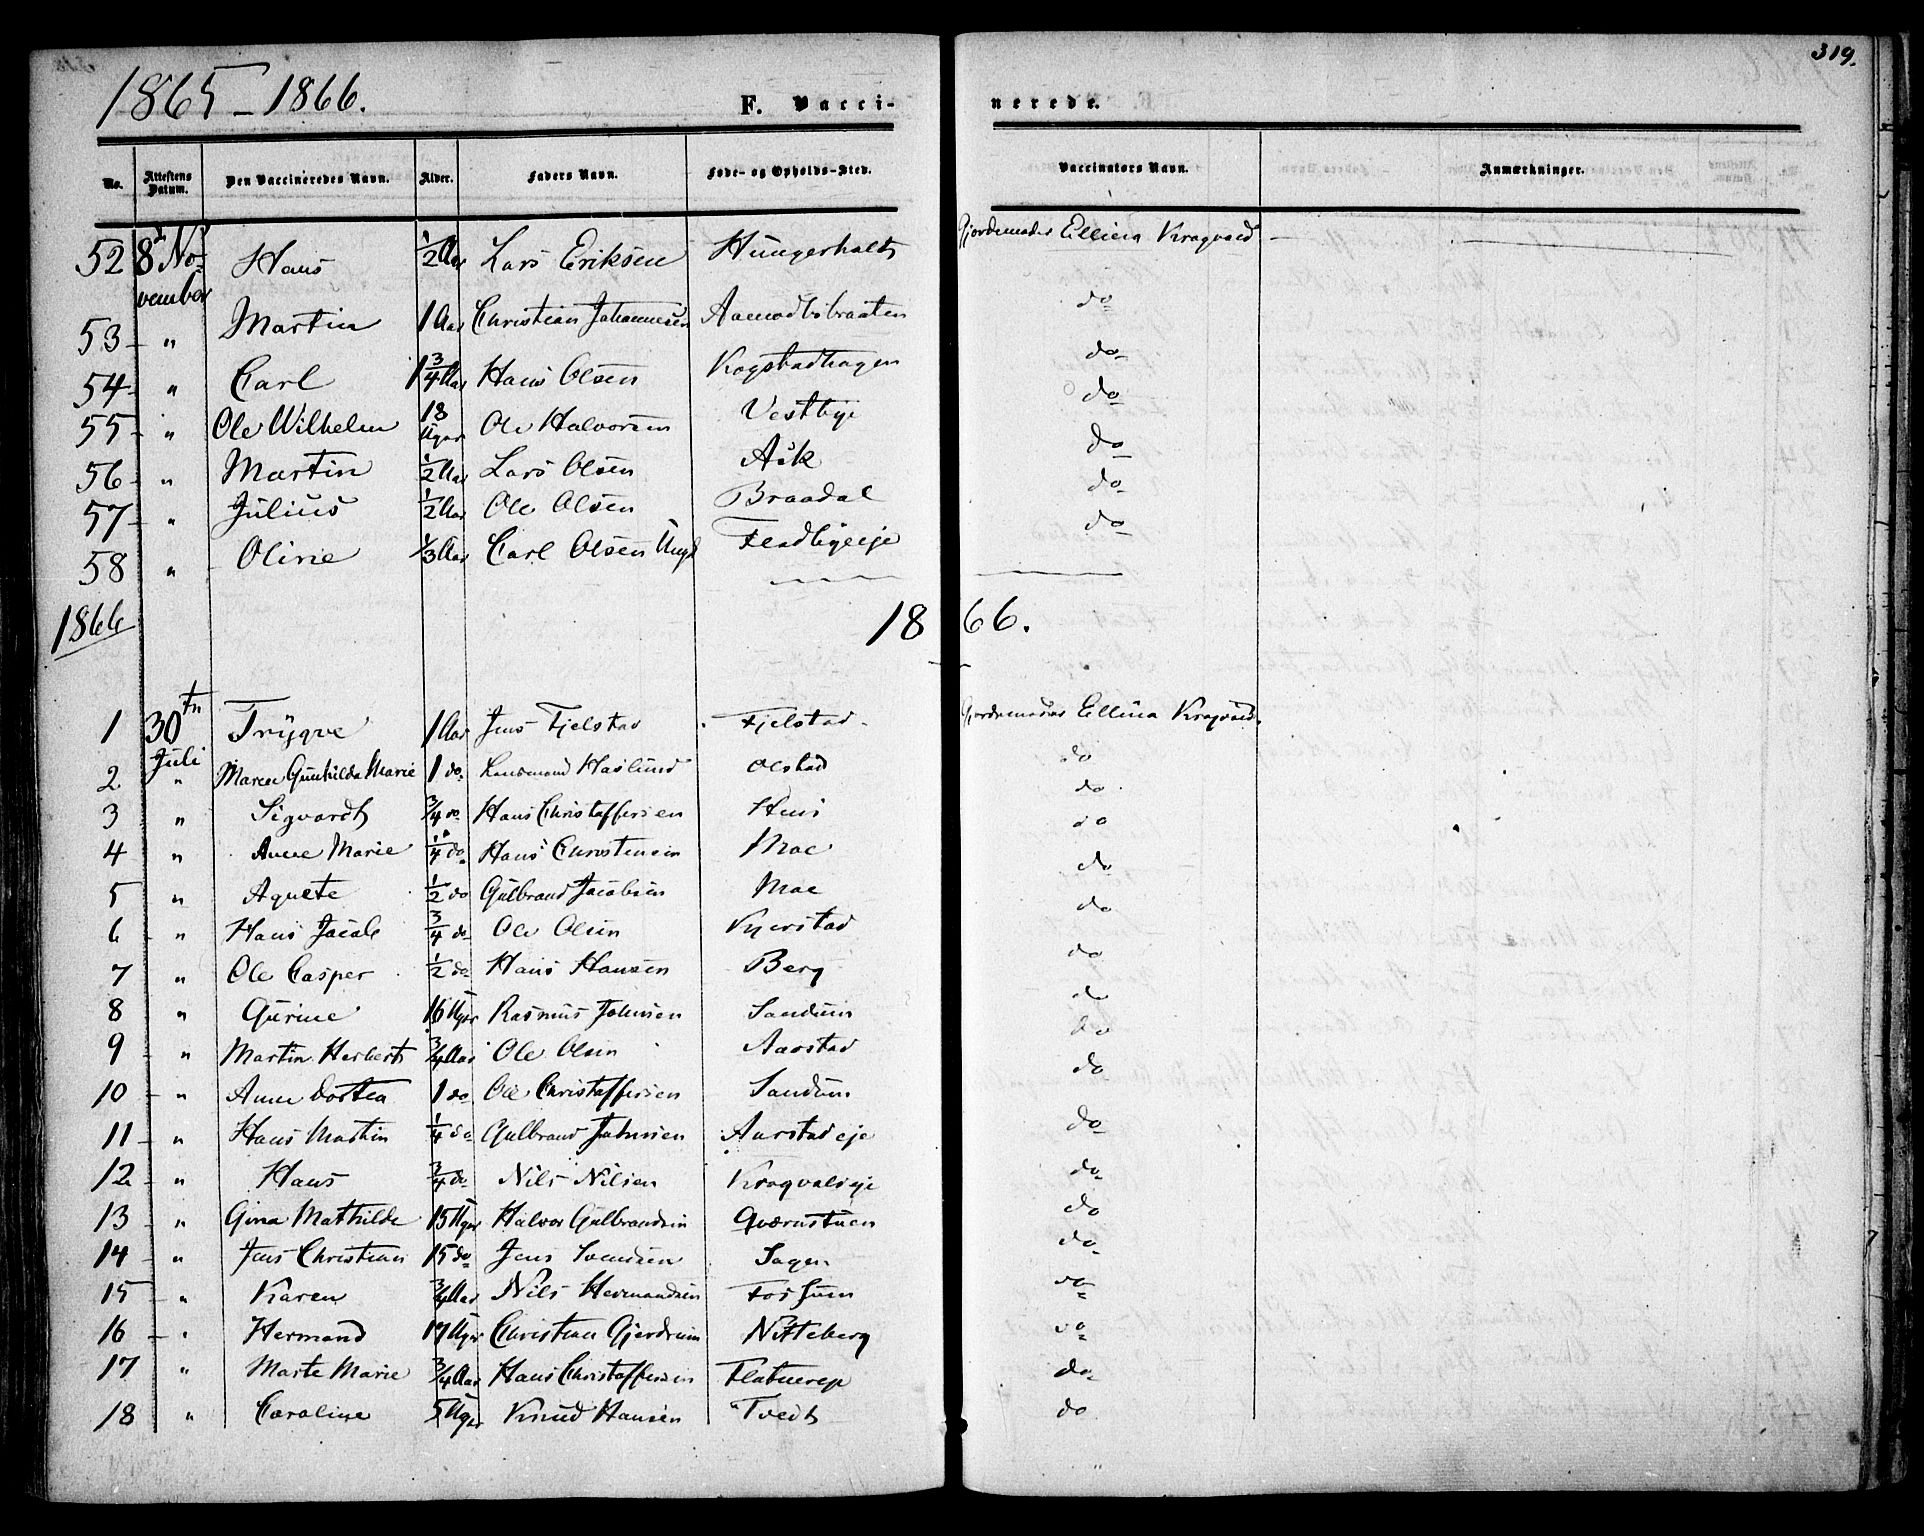 319.
1865 - 1866.
F. Vaccinerede.
No. Attestens Datum. Den Vaccineredes Navn. Alder. Faders Navn. Føde- og Opholds-Sted. Vaccinators Navn. Anmærkninger.
52 8de November Hans 1/2 Aar Lars Eriksen Hungerholdt Gjordemoder Ellina Kragvold
53 " Martin 1 Aar Christian Johannesen Aamodtsbraaten do
54 " Carl 1 3/4 Aar Hans Olsen Kogstadhagen do
55 " Ole Wilhelm 18 Uger Ole Halvorsen Vestbye do
56 " Martin 1/2 Aar Lars Olsen Ask do
57 " Julius 1/2 Aar Ole Olsen Braadal do
58 " Oline 1/3 Aar Carl Olsen Ungk Fladbyeeje do
1866 1866.
1 30tn Juli Trygve 1 Aar Jens Fjelstad Fjelstad Gjordemoder Ellina Kragvold.
2 " Maren Gunhilda Marie 1 do Landmand Haslund Olstad do
3 " Sigvardt 3/4 do Hans Christoffersen Huus do
4 " Anne Marie 1/4 do Hans Christensen Moe do
5 " Agnete 1/2 do Gulbrand Jacobsen Moe do
6 " Hans Jacob 3/4 do Ole Olsen Kjerstad do
7 " Ole Casper 1/2 do Hans Hansen Berg do
8 " Gurine 16 Uger Rasmus Johnsen Sandum do
9 " Martin Herbert 3/4 Aar Ole Olsen Aarstad do
10 " Anne Dortea 1 do Ole Christoffersen Sandum do
11 " Hans Martin 1/4 do Gulbrand Johnsen Aarstadeje do
12 " Hans 3/4 do Nils Nilsen Kragvoldeje do
13 " Gina Mathilde 15 Uger Halvor Gulbrandsen Qværnstuen do
14 " Jens Christian 15 do Jens Svendsen Sagen do
15 " Karen 3/4 Aar Nils Hermandsen Fossum do
16 " Hermand 17 Uger Christian Gjerdrum Nitteberg do
17 " Marte Marie 3/4 Aar Hans Christoffersen Flatnereje do
18 " Caroline 5 Uger Knud Hansen Tvedt do